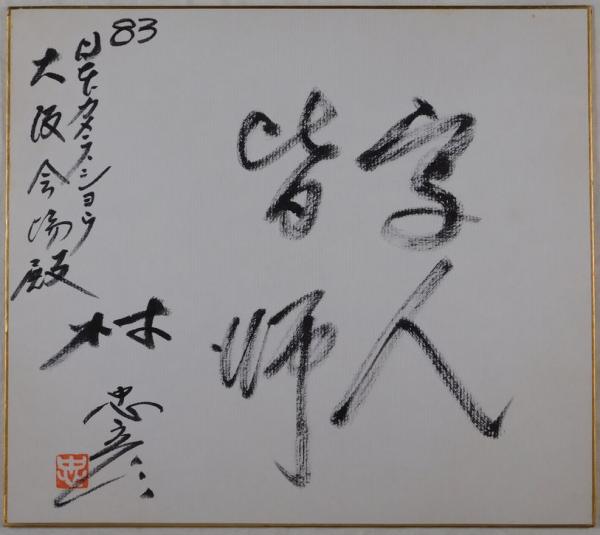 字人
皆師
83
日本カメラショウ
大阪会場殿
林忠彦
忠